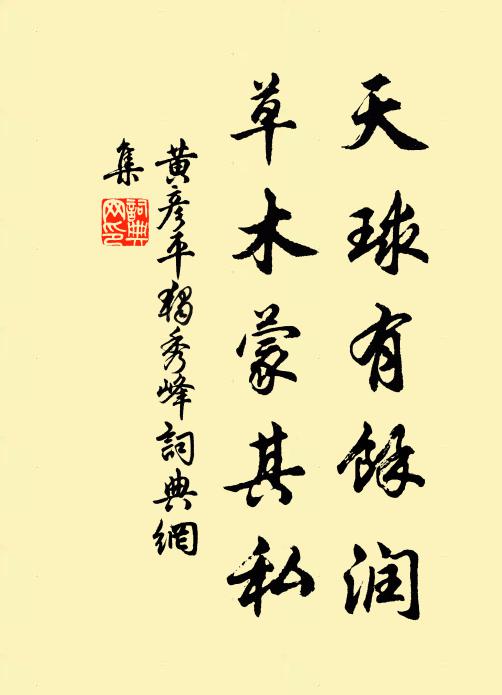 天球有餘润
草木蒙其私
黄彦平獨秀峰詞典網
集
詞典网印